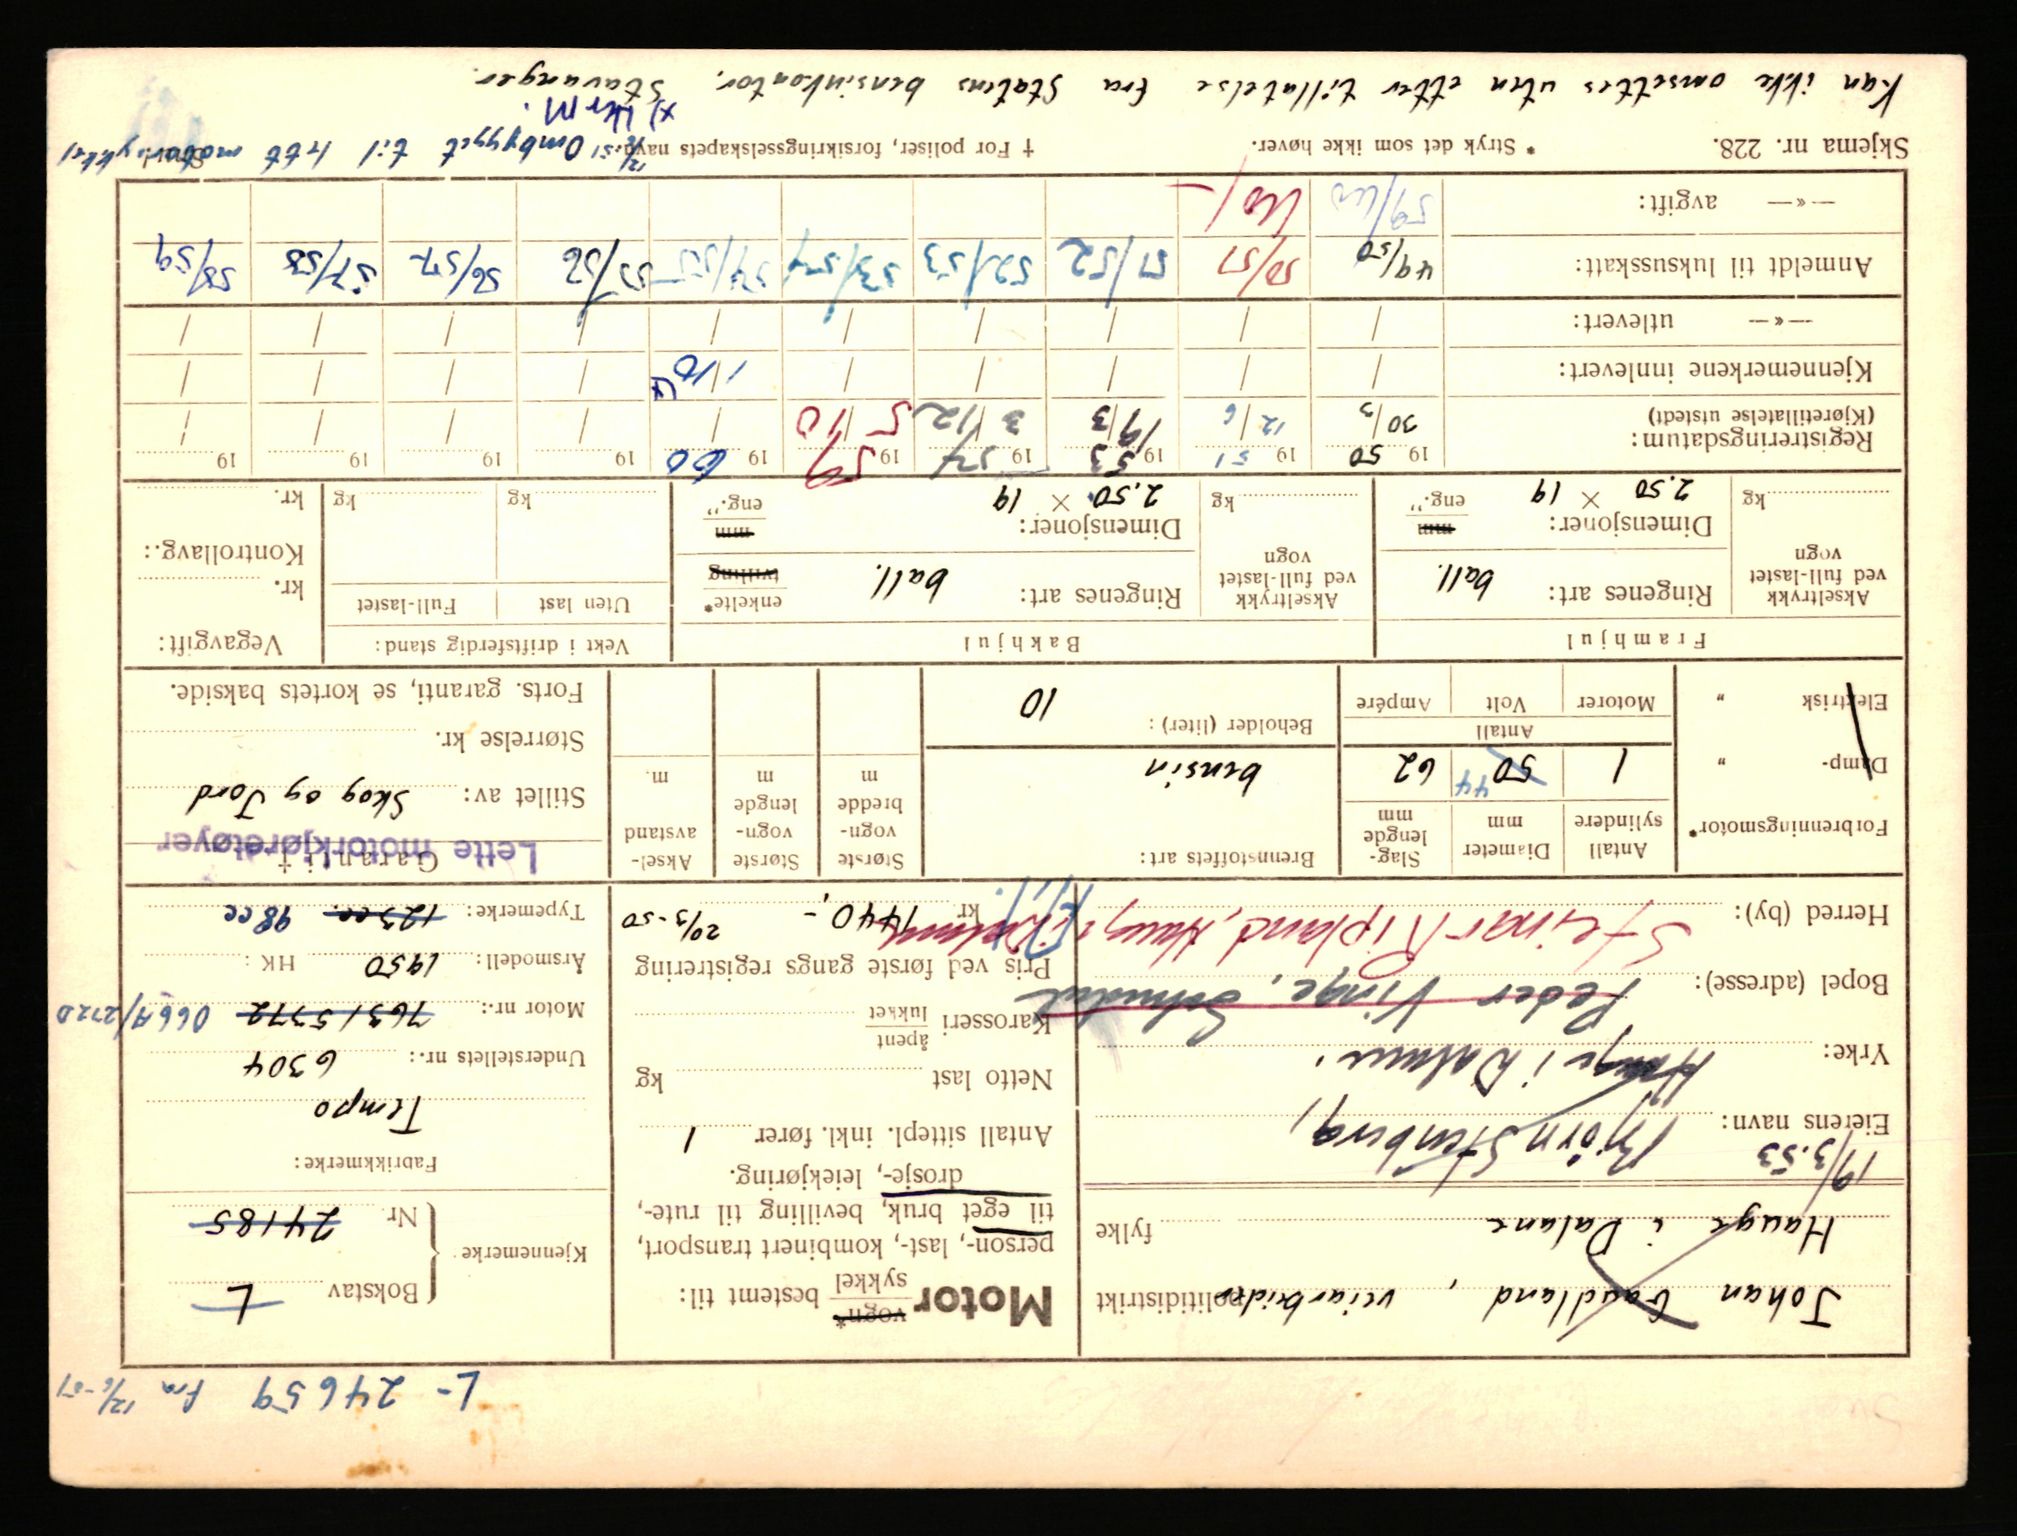 L- 24659 fra 12/6-51
Johan Gaudland, veiarbeider politidistrikt
Hauge i Dalane fylke
19/3.53
Eierens navn: Bjørn Stenberg,
Yrke: Hauge i Dalane.
Bopel (adresse): Peder Vinge,
Herred (by): Steinar Ripland, Hauge i Dalane
Motor vogn* sykkel bestemt til:
person-, last-, kombinert transport,
til eget bruk, bevilling til rute-,
drosje-, leiekjøring.
Antall sittepl. inkl. fører 1
Netto last kg
Karosseri åpent lukket
Pris ved første gangs registrering
kr. 1440,- 20/3-50
Kjennemerke { Bokstav L
Nr 24185
Fabrikkmerke:
Tempo
Understellets nr.: 6304
Motor nr.: 7631 5372 066A/2720
Årsmodell: 1950 HK:
Typemerke: 123 cc. 98 cc
Forbrenningsmotor*
Damp- „
Elektrisk „
Antall sylindere 1
Diameter mm 50 44
Slag-lengde mm 62
Antall
Motorer Volt Ampére
Brennstoffets art:
bensin
Beholder (liter): 10
Største vogn-bredde m
Største vogn-lengde m
Aksel-avstand m.
Garanti †
Lette motorkjøretøyer
Stillet av: Skog og Jord
Størrelse kr.
Forts. garanti, se kortets bakside.
Framhjul
Akseltrykk ved full-lastet vogn kg
Ringenes art: ball.
Dimensjoner: mm eng.”
2.50 × 19
Bakhjul
Akseltrykk ved full-lastet vogn kg
Ringenes art: ball. enkelte* tvilling
Dimensjoner: mm eng.”
2.50 × 19
Vekt i driftsferdig stand:
Uten last Full-lastet
kg kg
Vegavgift:
kr.
Kontrollavg.:
kr.
Registreringsdatum: 19 50 19 51 19 53 19 54 19 59 19 60 19 19 19 19
(Kjøretillatelse utstedt) 30/3 12/6 19/3 3/12 5/10 / / / / /
Kjennemerkene innlevert: / / / / / 1/10 / / / /
—«— utlevert: / / / / / / / / / /
Anmeldt til luksusskatt: 49/50 50/51 51/52 52/53 53/54 54/55 55/56 56/57 57/58 58/59
—«— avgift: 59/60
Skjema nr. 228. * Stryk det som ikke høver. † For poliser, forsikringsselskapets navn.
12/6.51 Ombygget til lett motorsykkel
Kan ikke omsettes uten etter tillatelse fra Statens bensinkontor, Stavanger.